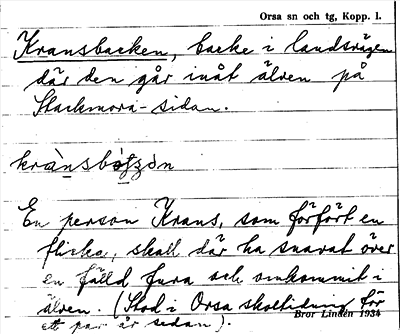 Orsa sn och tg, Kopp. l.
Kransbacken, backe i landsvägen
där den går inåt älven på
Stackmora-sidan.
krànsbàtsən
En person Krans, som förfört en
flicka, skall där ha snavat över
en fälld fura och omkommit i
älven. (Stod i Orsa skoltidning för
ett par år sedan).
Bror Lindén 1934